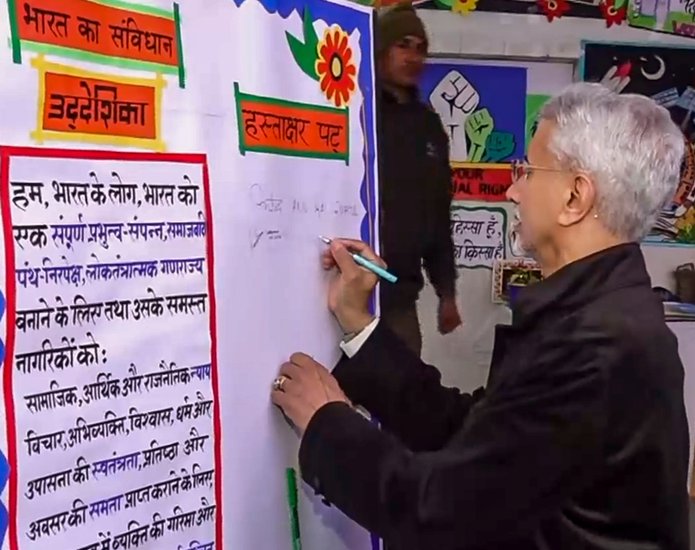 भारत का संविधान
उद्देशिका
हम, भारत के लोग, भारत को
एक संपूर्ण प्रभुत्व-संपन्न, समाजवादी
पंथ-निरपेक्ष, लोकतंत्रात्मक गणराज्य
बनाने के लिए तथा उसके समस्त
नागरिकों को:
सामाजिक, आर्थिक और राजनैतिक न्याय
विचार, अभिव्यक्ति, विश्वास, धर्म और
उपासना की स्वतंत्रता, प्रतिष्ठा और
अवसर की समता प्राप्त कराने के लिए,
में व्यक्ति की गरिमा और
हस्ताक्षर पट्
YOUR
RIGHT
हिस्सा हूँ,
का किस्सा है